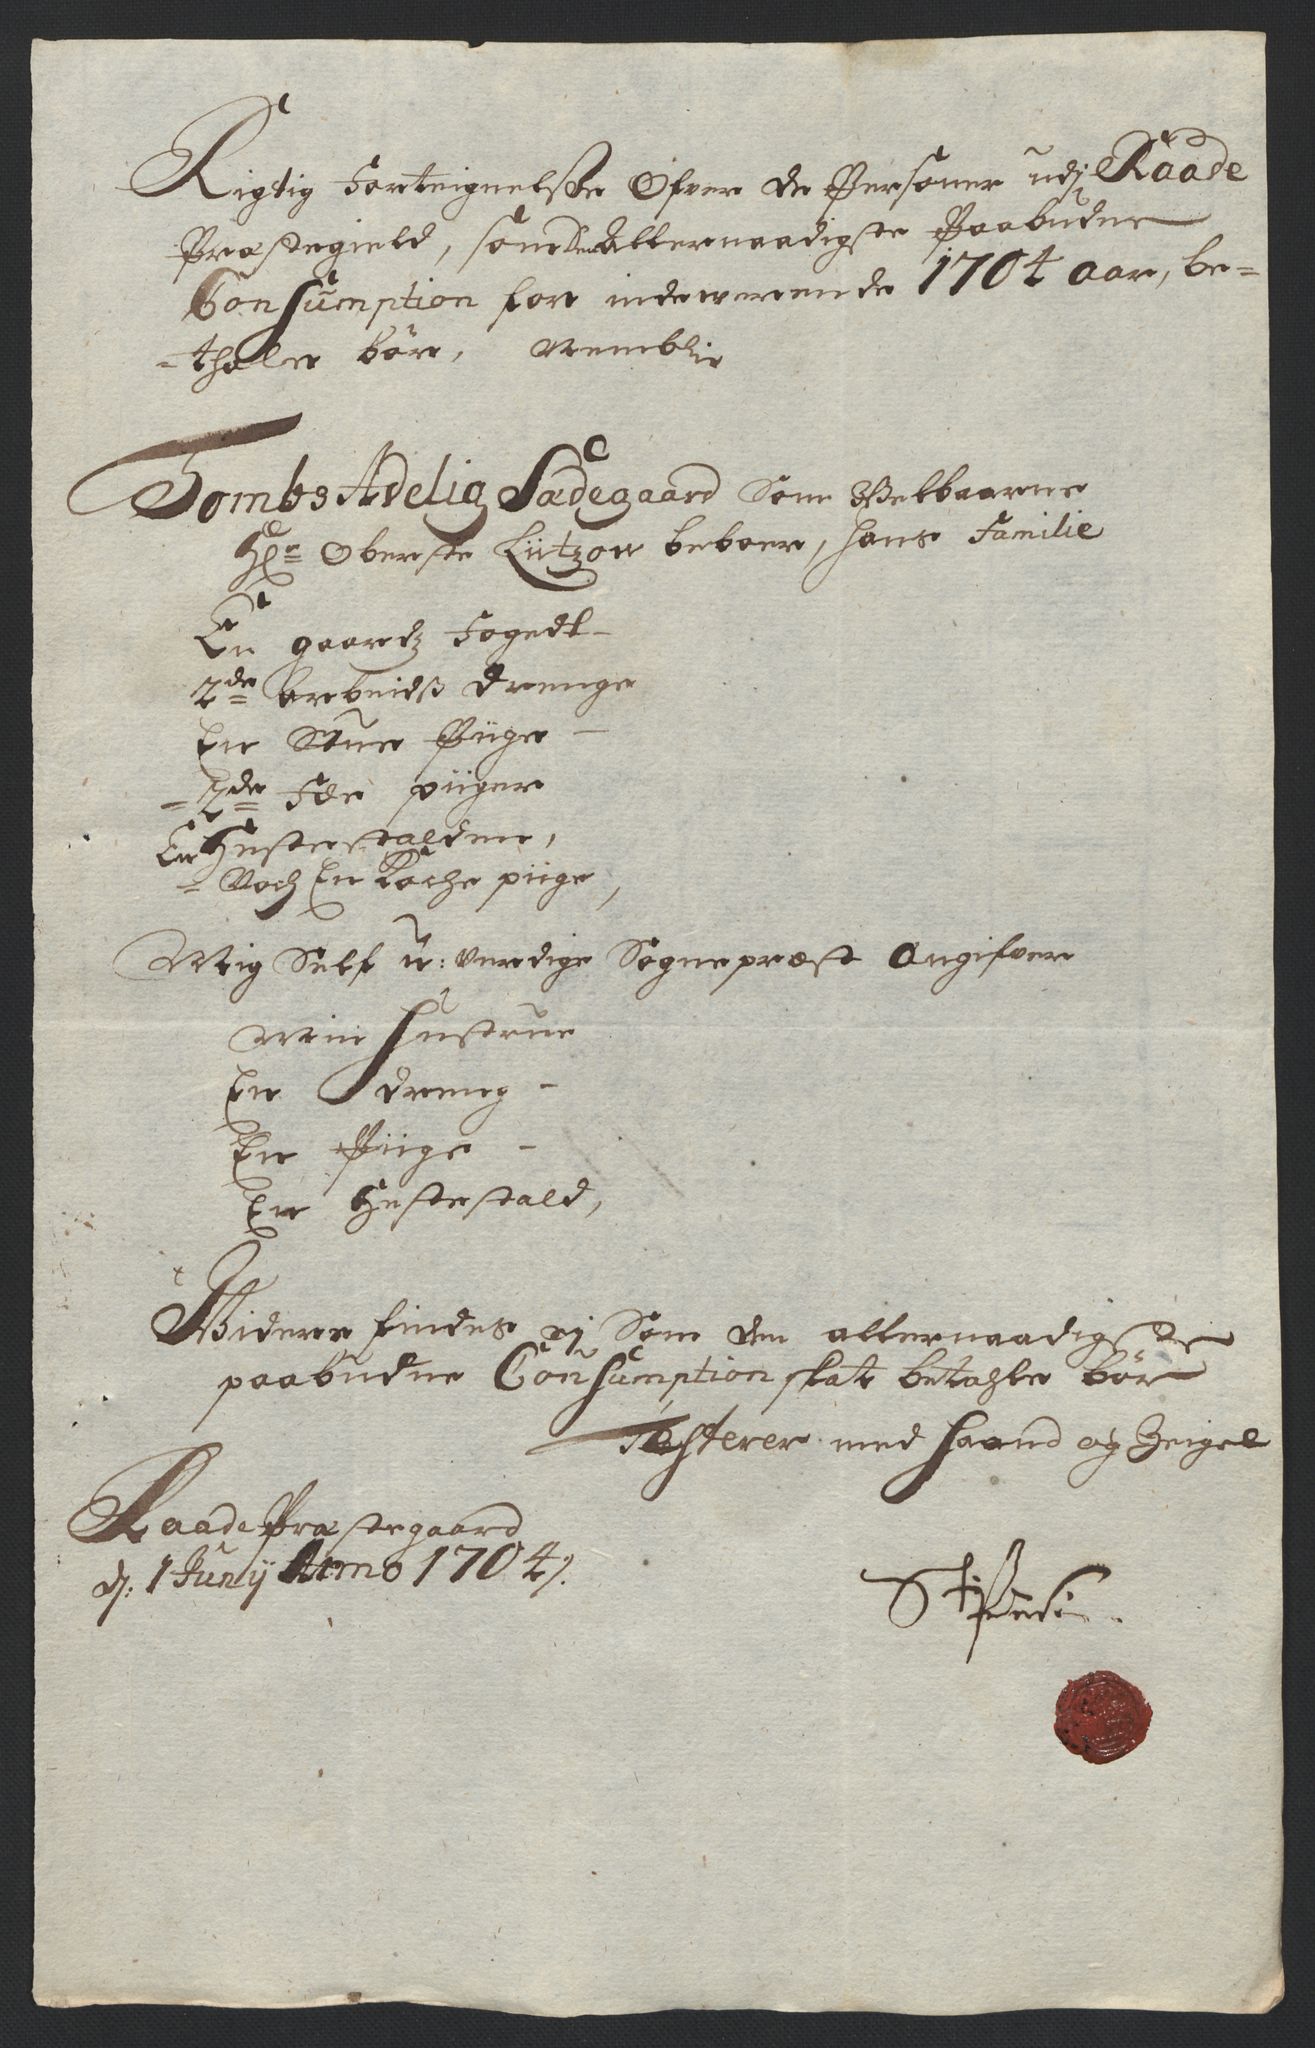 Rigtig Forteignelsse Ofver de Persōner udj Raade
Præstegield, som den Allernaadigste Paabudne
Consumption for indeverende 1704 aar, be=
=thale bör, Nemblig
Tombs Adelig Sædegaard Som Velbaarne
Hr Oberste Lützow beboer, hans Familie
En gaardtz Fogedt -
2de Arbeidtz drenge
En Stue Piige -
=2de Fæ piiger
En Hestestalden,
= Noch En Koche piige,
Mig Self u: verdige Sognepræst Angifver
Min Hustrue
En dreng -
En Piige -
En Hestestald,
Videre findes ej Som den allernaadigste
paabudne Consumption skat betahle bör
Testerer med Haand og Zeigel
Raade Præstegaard
d: 1 Junij Anno 1704.